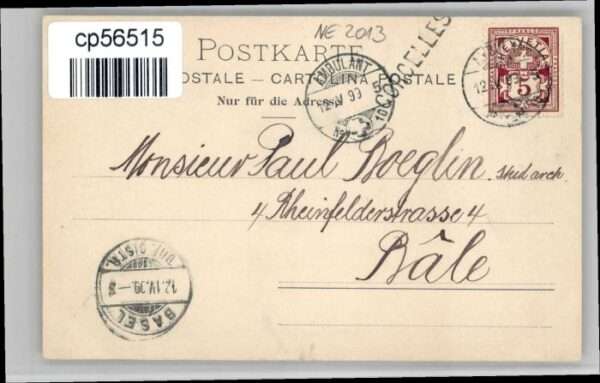 cp56515
NE 2013
CORCELLES
POSTKARTE
POSTALE — CARTOLINA POSTALE
Nur für die Adresse
AMBULANT
12.IV.99
HELVETIA
5
12.IV.99
Monsieur Paul Boeglin, stud. arch.
4 Rheinfelderstrasse 4
Bâle
BASEL
12.IV.99
DISTR.